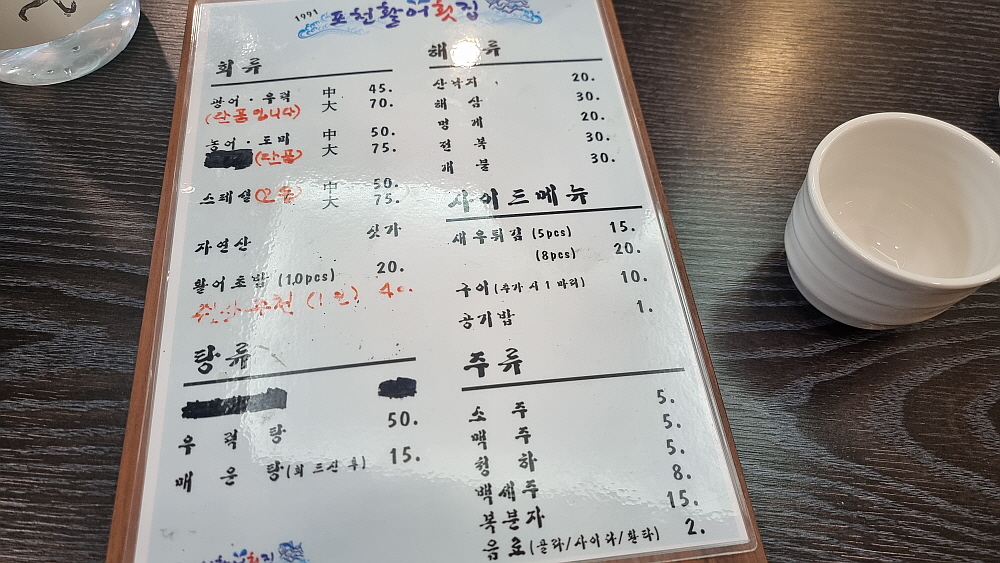 1991 포천활어횟집
회류
광어·우럭 中 45.
大 70.
(단품입니다)
농어·도미 中 50.
(단품) 大 75.
스테셀(모듬) 中 50.
大 75.
자연산 싯가
활어초밥 (10pcs) 20.
추천 (1인) 40.
탕류
우럭탕 50.
매운탕(회 드신 후) 15.
해 류
산낙지 20.
해삼 30.
멍게 20.
전복 30.
개불 30.
사이드메뉴
새우튀김 (5pcs) 15.
(8pcs) 20.
구이(추가 시 1 마리) 10.
공기밥 1.
주류
소주 5.
맥주 5.
청하 5.
백세주 8.
복분자 15.
음료(콜라/사이다/환타) 2.
활어횟집